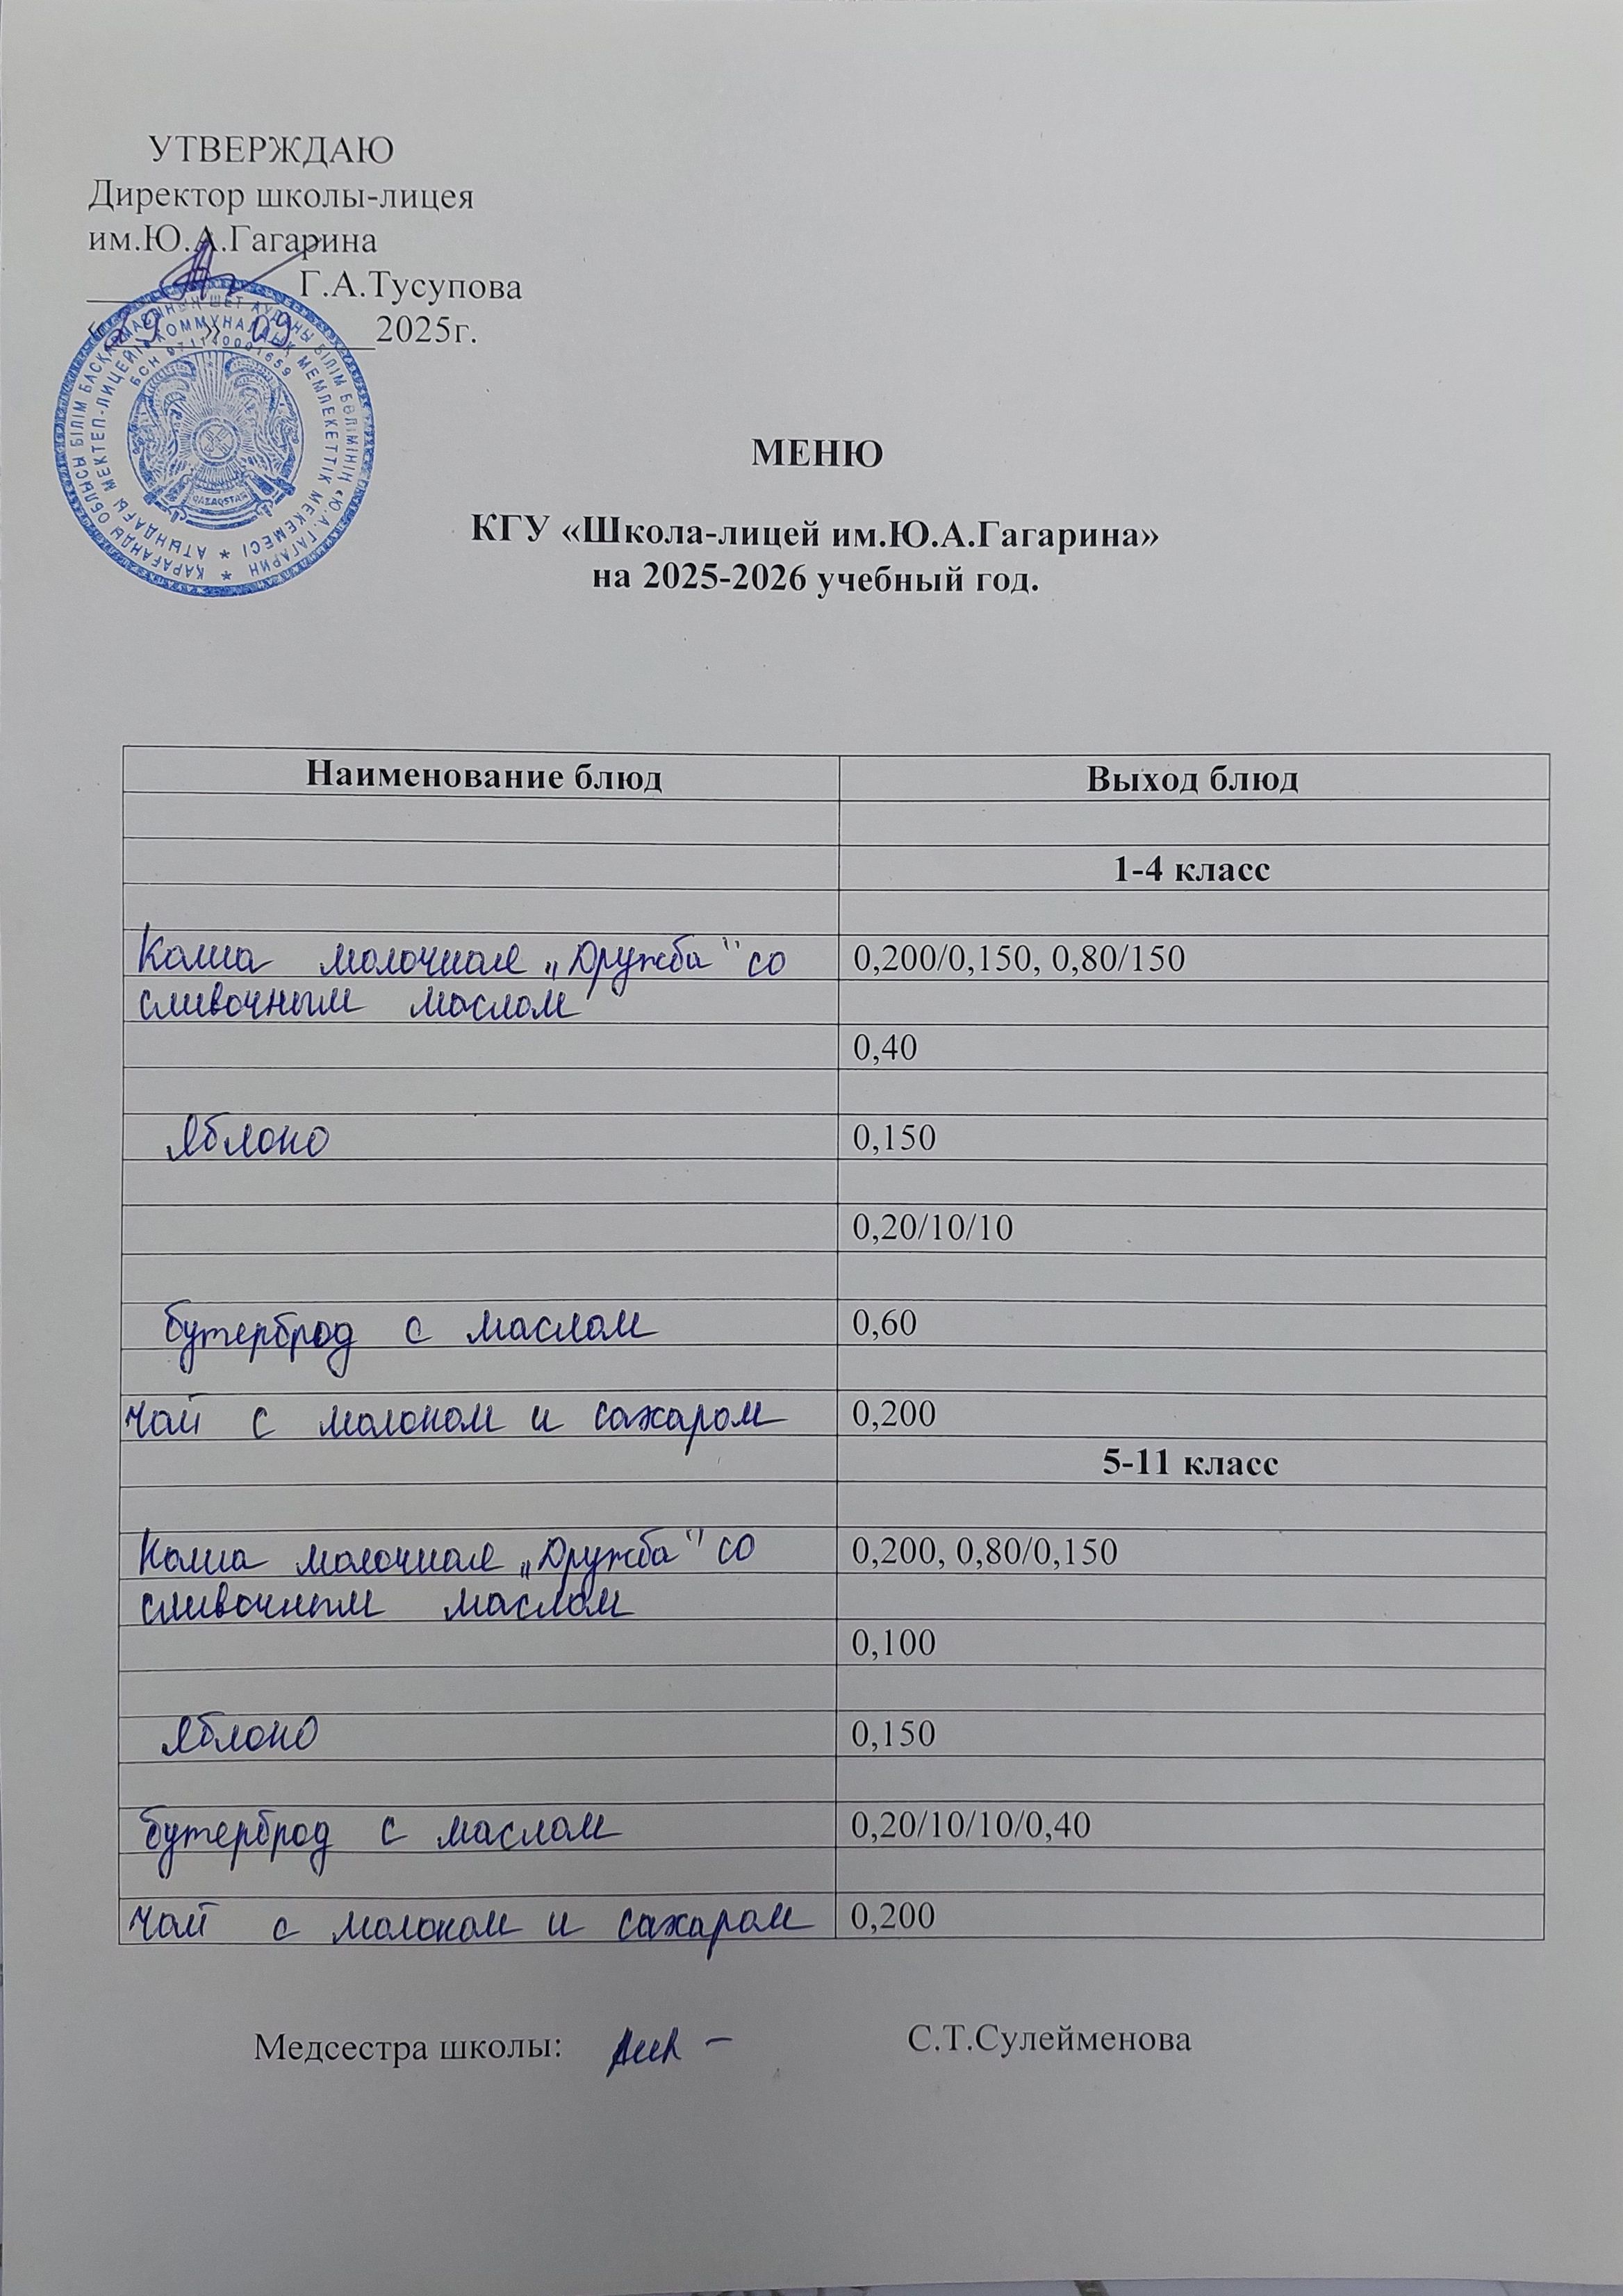 УТВЕРЖДАЮ
Директор школы-лицея
им.Ю.А.Гагарина
Г.А.Тусупова
«29» 09 2025г.
ҚАРАҒАНДЫ ОБЛЫСЫ БІЛІМ БАСҚАРМАСЫНЫҢ ШЕТ АУДАНЫ БІЛІМ БӨЛІМІНІҢ «Ю.А.ГАГАРИН
АТЫНДАҒЫ МЕКТЕП-ЛИЦЕЙІ» КОММУНАЛДЫҚ МЕМЛЕКЕТТІК МЕКЕМЕСІ
БСН 971140001659
QAZAQSTAN
МЕНЮ
КГУ «Школа-лицей им.Ю.А.Гагарина»
на 2025-2026 учебный год.
Наименование блюд Выход блюд
1-4 класс
Каша молочная „Дружба" со 0,200/0,150, 0,80/150
сливочным маслом
0,40
Яблоко 0,150
0,20/10/10
бутерброд с маслом 0,60
Чай с молоком и сахаром 0,200
5-11 класс
Каша молочная „Дружба" со 0,200, 0,80/0,150
сливочным маслом
0,100
Яблоко 0,150
бутерброд с маслом 0,20/10/10/0,40
Чай с молоком и сахаром 0,200
Медсестра школы: С.Т.Сулейменова